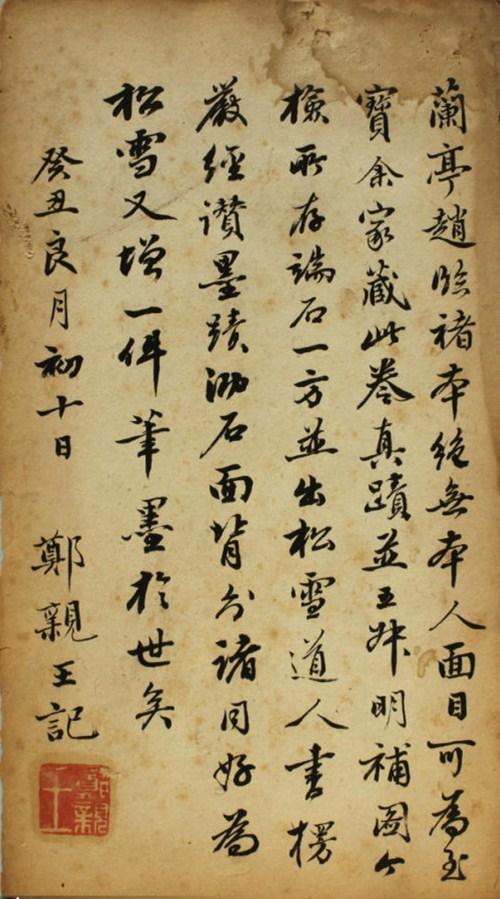 蘭亭趙臨褚本絶無本人面目可為至
寶余家藏此卷真蹟並王叔明補圖今
檢所存端石一方並出松雪道人書楞
嚴經讃墨蹟泐石面背分諸同好為
松雪又增一件筆墨於世矣
癸丑良月初十日 鄭親王記
鄭親王